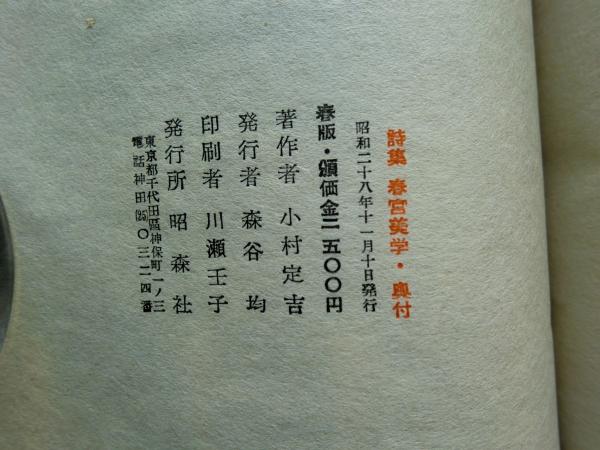 詩集 春宮美学・奥付
昭和二十八年十一月十日発行
春版・頒価金二五〇〇円
著作者 小村定吉
発行者 森谷均
印刷者 川瀬壬子
発行所 昭森社
東京都千代田區神保町一ノ三
電話神田(25)〇三二四番